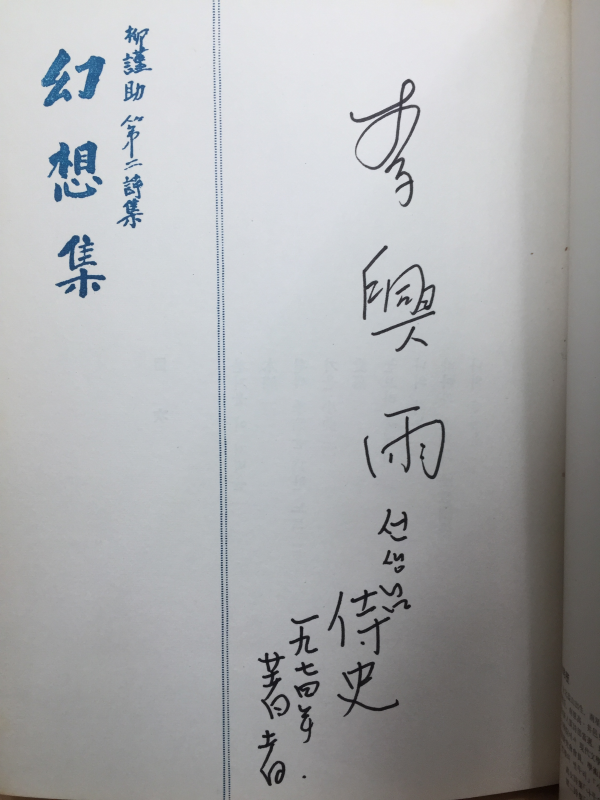 柳謹助 第二詩集
幻想集
李興雨
선생님
侍史
一九七四年.
著者